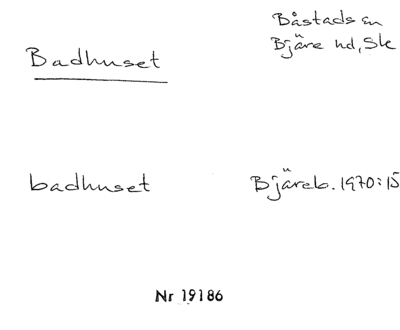 Badhuset
Båstads sn
Bjäre hd, Sk
badhuset
Bjäreb. 1970:15
Nr 19186